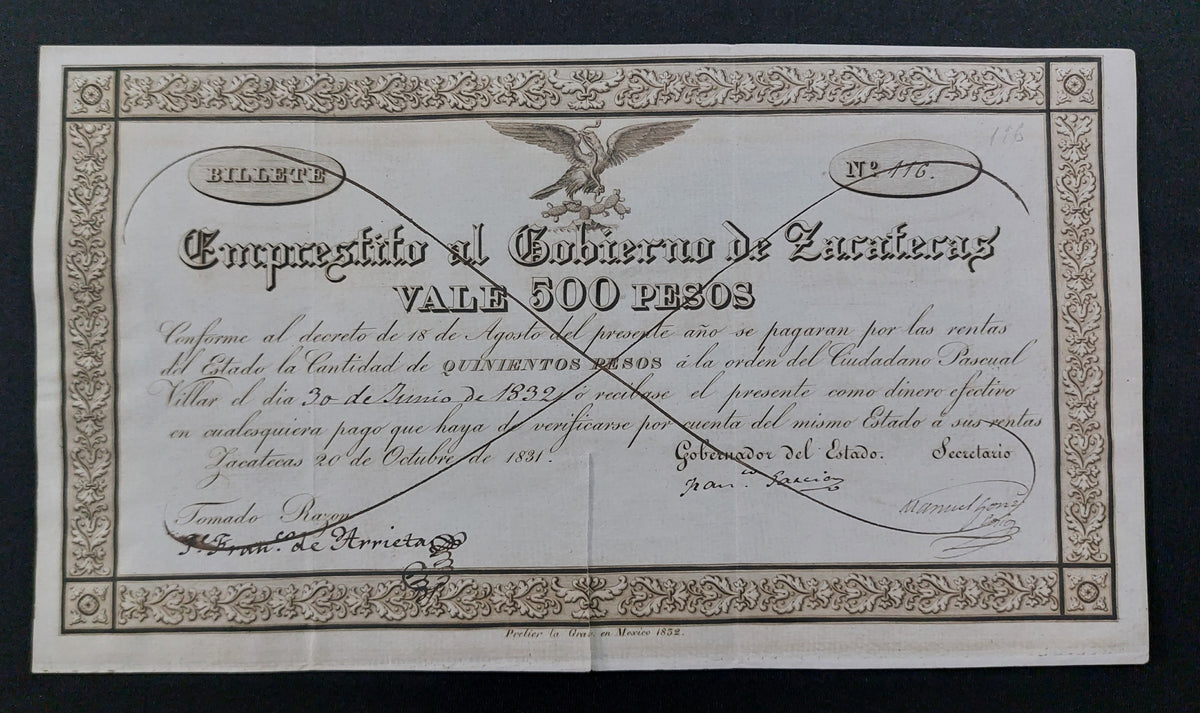 BILLETE
Nº 116.
116
Emprestito al Gobierno de Zacatecas
VALE 500 PESOS
Conforme al decreto de 18 de Agosto del presente año se pagaran por las rentas
del Estado la Cantidad de QUINIENTOS PESOS á la orden del Ciudadano Pascual
Villar el dia 30 de Junio de 1832 ó recibase el presente como dinero efectivo
en cualesquiera pago que haya de verificarse por cuenta del mismo Estado a sus rentas
Zacatecas 20 de Octubre de 1831.
Gobernador del Estado. Secretario
Franco. Garcia
Manuel Gonz
Tomado Razon
Franco. de Arrieta
Prelier la Grav. en Mexico 1832.